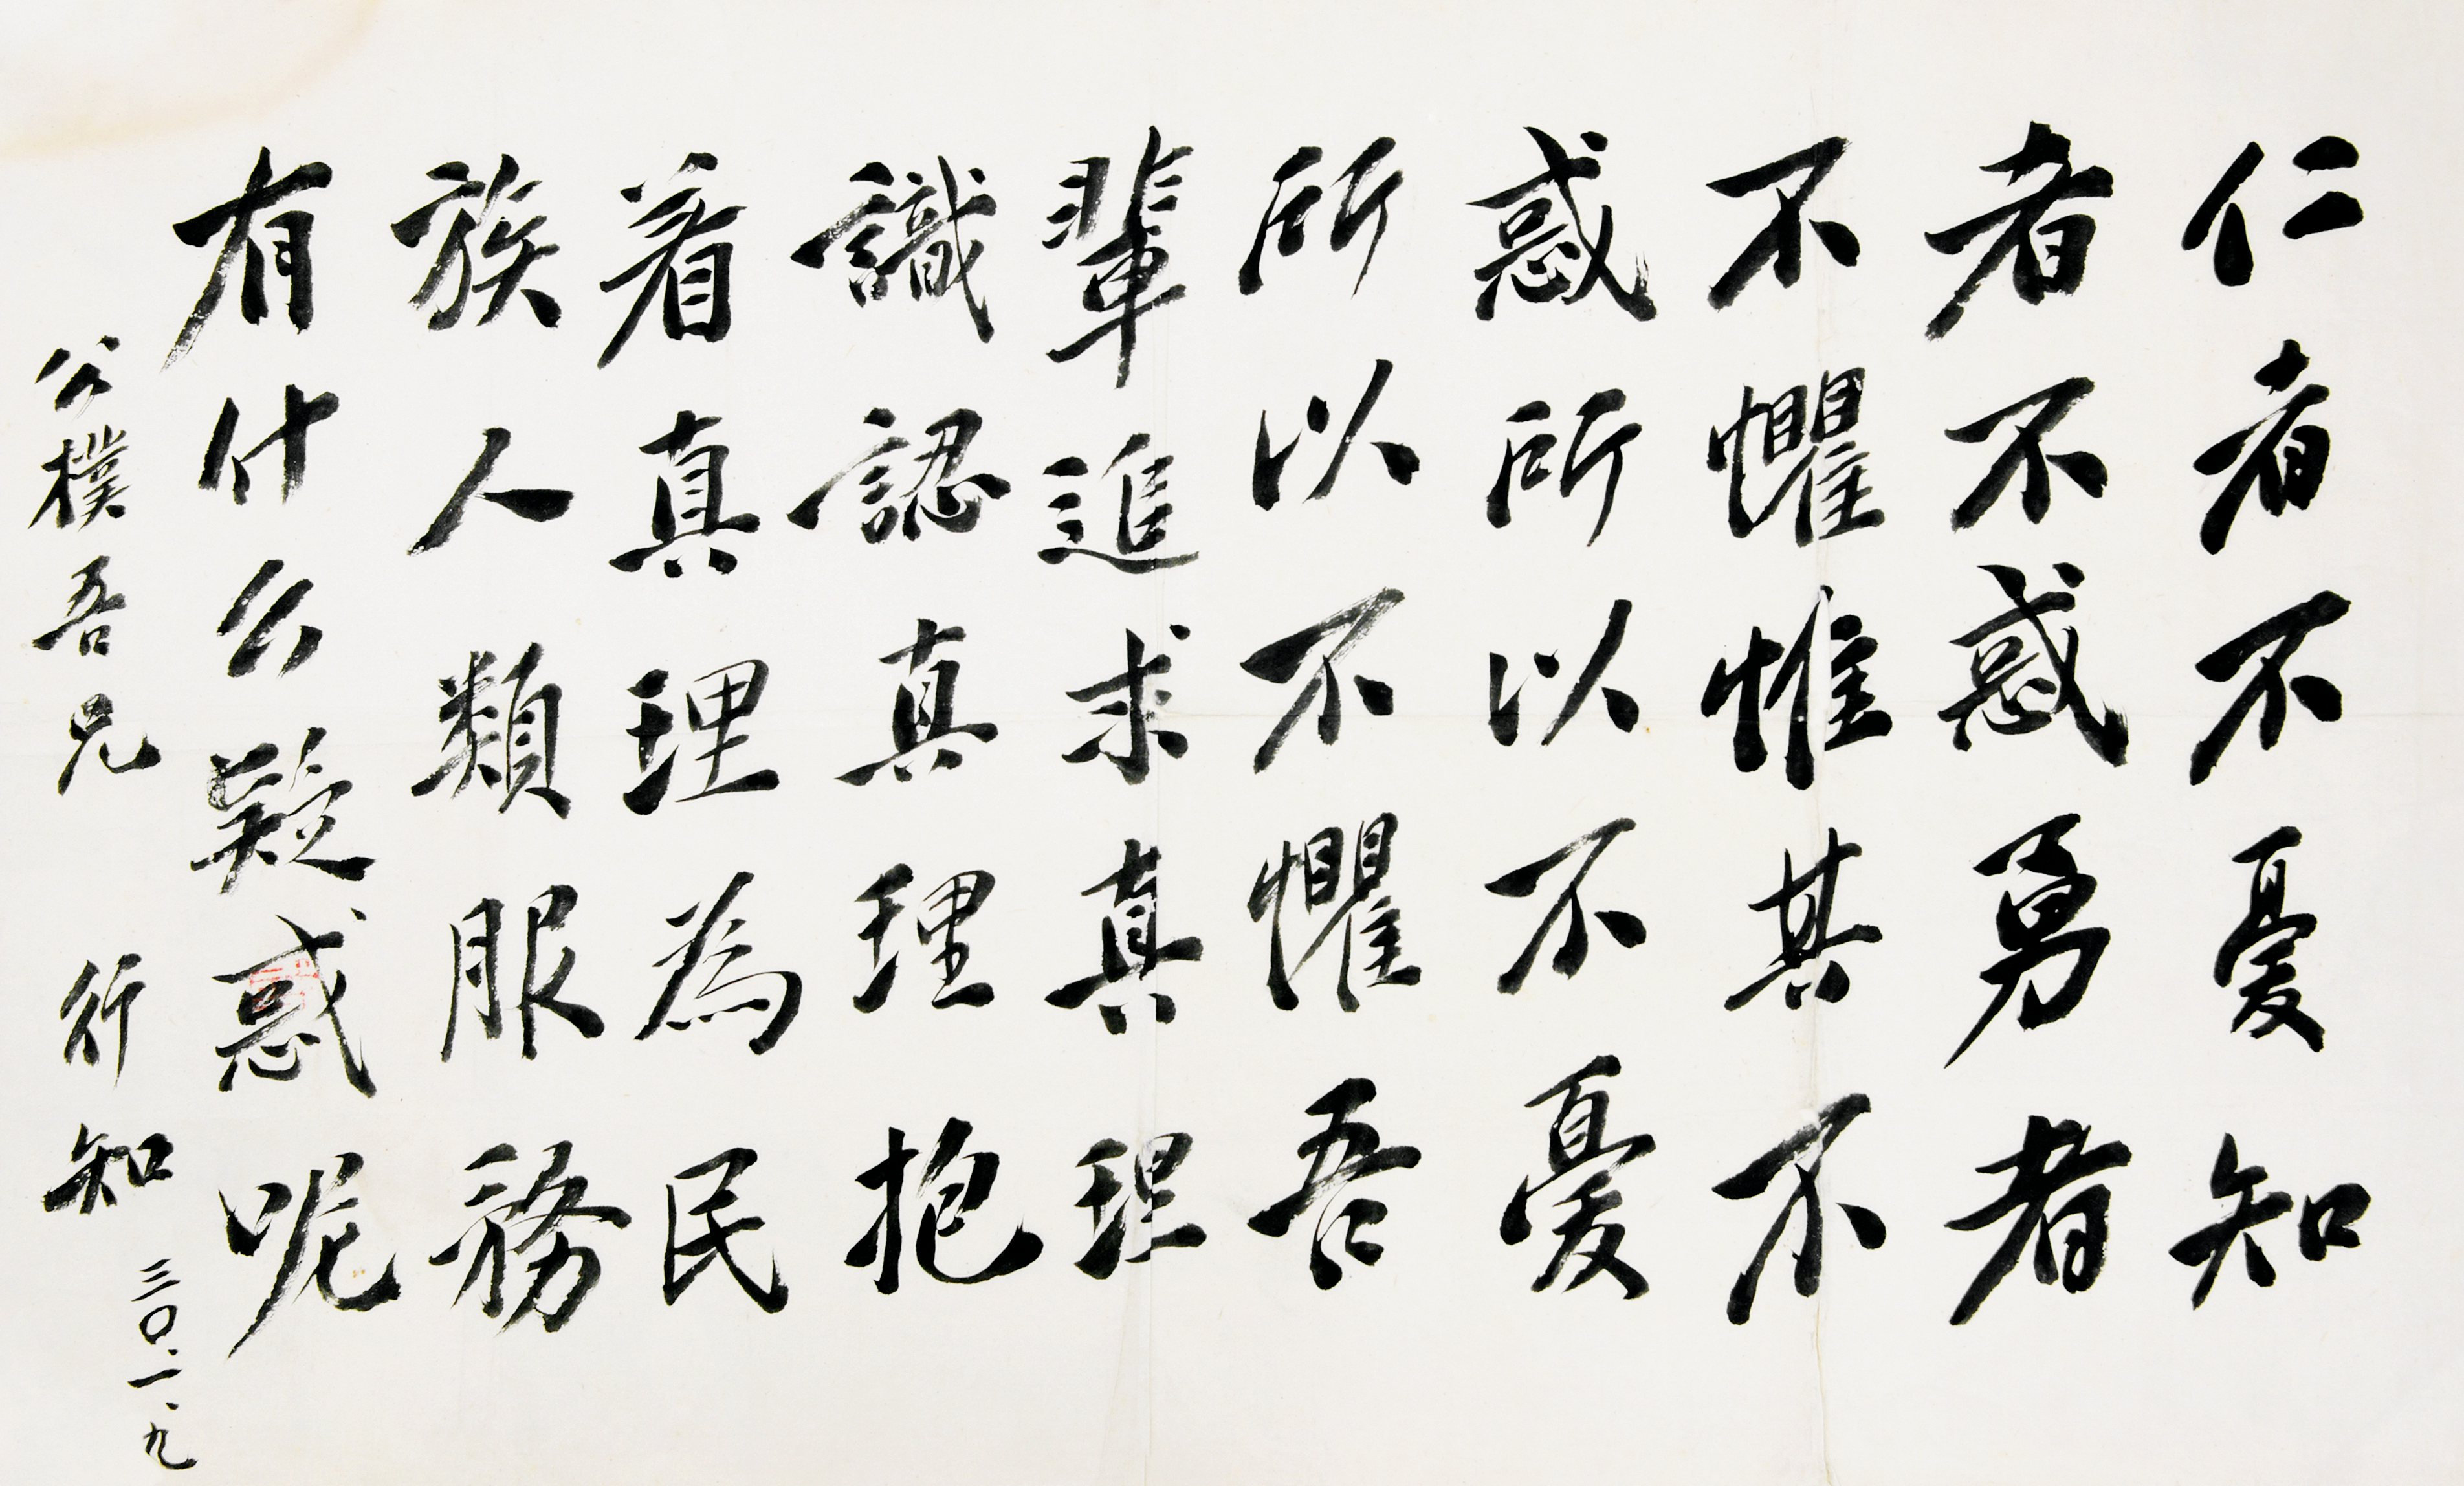 仁者不憂知
者不惑勇者
不懼惟其不
惑所以不憂
所以不懼吾
輩進求真理
識認真理抱
着真理為民
族人類服務
有什么疑惑呢
公樸吾兄
行知
三〇.一.九